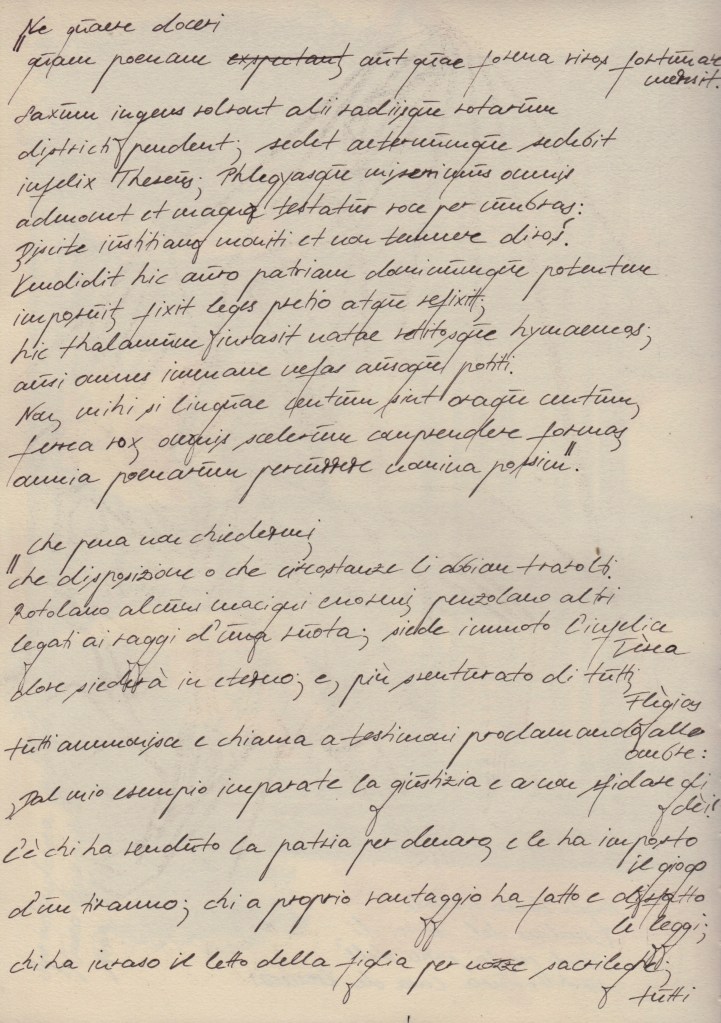 "Ne quaere doceri
quam poenam exspectant, aut quae forma viros fortunave
mersit.
Saxum ingens volvont alii radiisque rotarum
districti pendent; sedet aeternumque sedebit
infelix Theseus; Phlegyasque miserrimus omnis
admonet et magna testatur voce per umbras:
"Discite iustitiam moniti et non temnere divos".
Vendidit hic auro patriam dominumque potentem
imposuit, fixit leges pretio atque refixit;
hic thalamum invasit natae vetitosque hymaeneos;
ausi omnes immane nefas ausoque potiti.
Non, mihi si linguae centum sint oraque centum,
ferrea vox, omnis scelerum comprendere formas,
omnia poenarum percurrere nomina possim".
"Che pena non chiedermi,
che disposizione o che circostanze li abbian travolti.
Rotolano alcuni macigni enormi, penzolano altri
legati ai raggi d'una ruota; siede immoto l'infelice
Tèsea
dove siederà in eterno; e, più sventurato di tutti,
Flègias
tutti ammonisce e chiama a testimoni proclamando alle
ombre:
"Dal mio esempio imparate la giustizia e a non sfidare gli
dèi".
C'è chi ha venduto la patria per denaro, e le ha imposto
il giogo
d'un tiranno; chi a proprio vantaggio ha fatto e disfatto
le leggi;
chi ha invaso il letto della figlia per nozze sacrileghe;
tutti